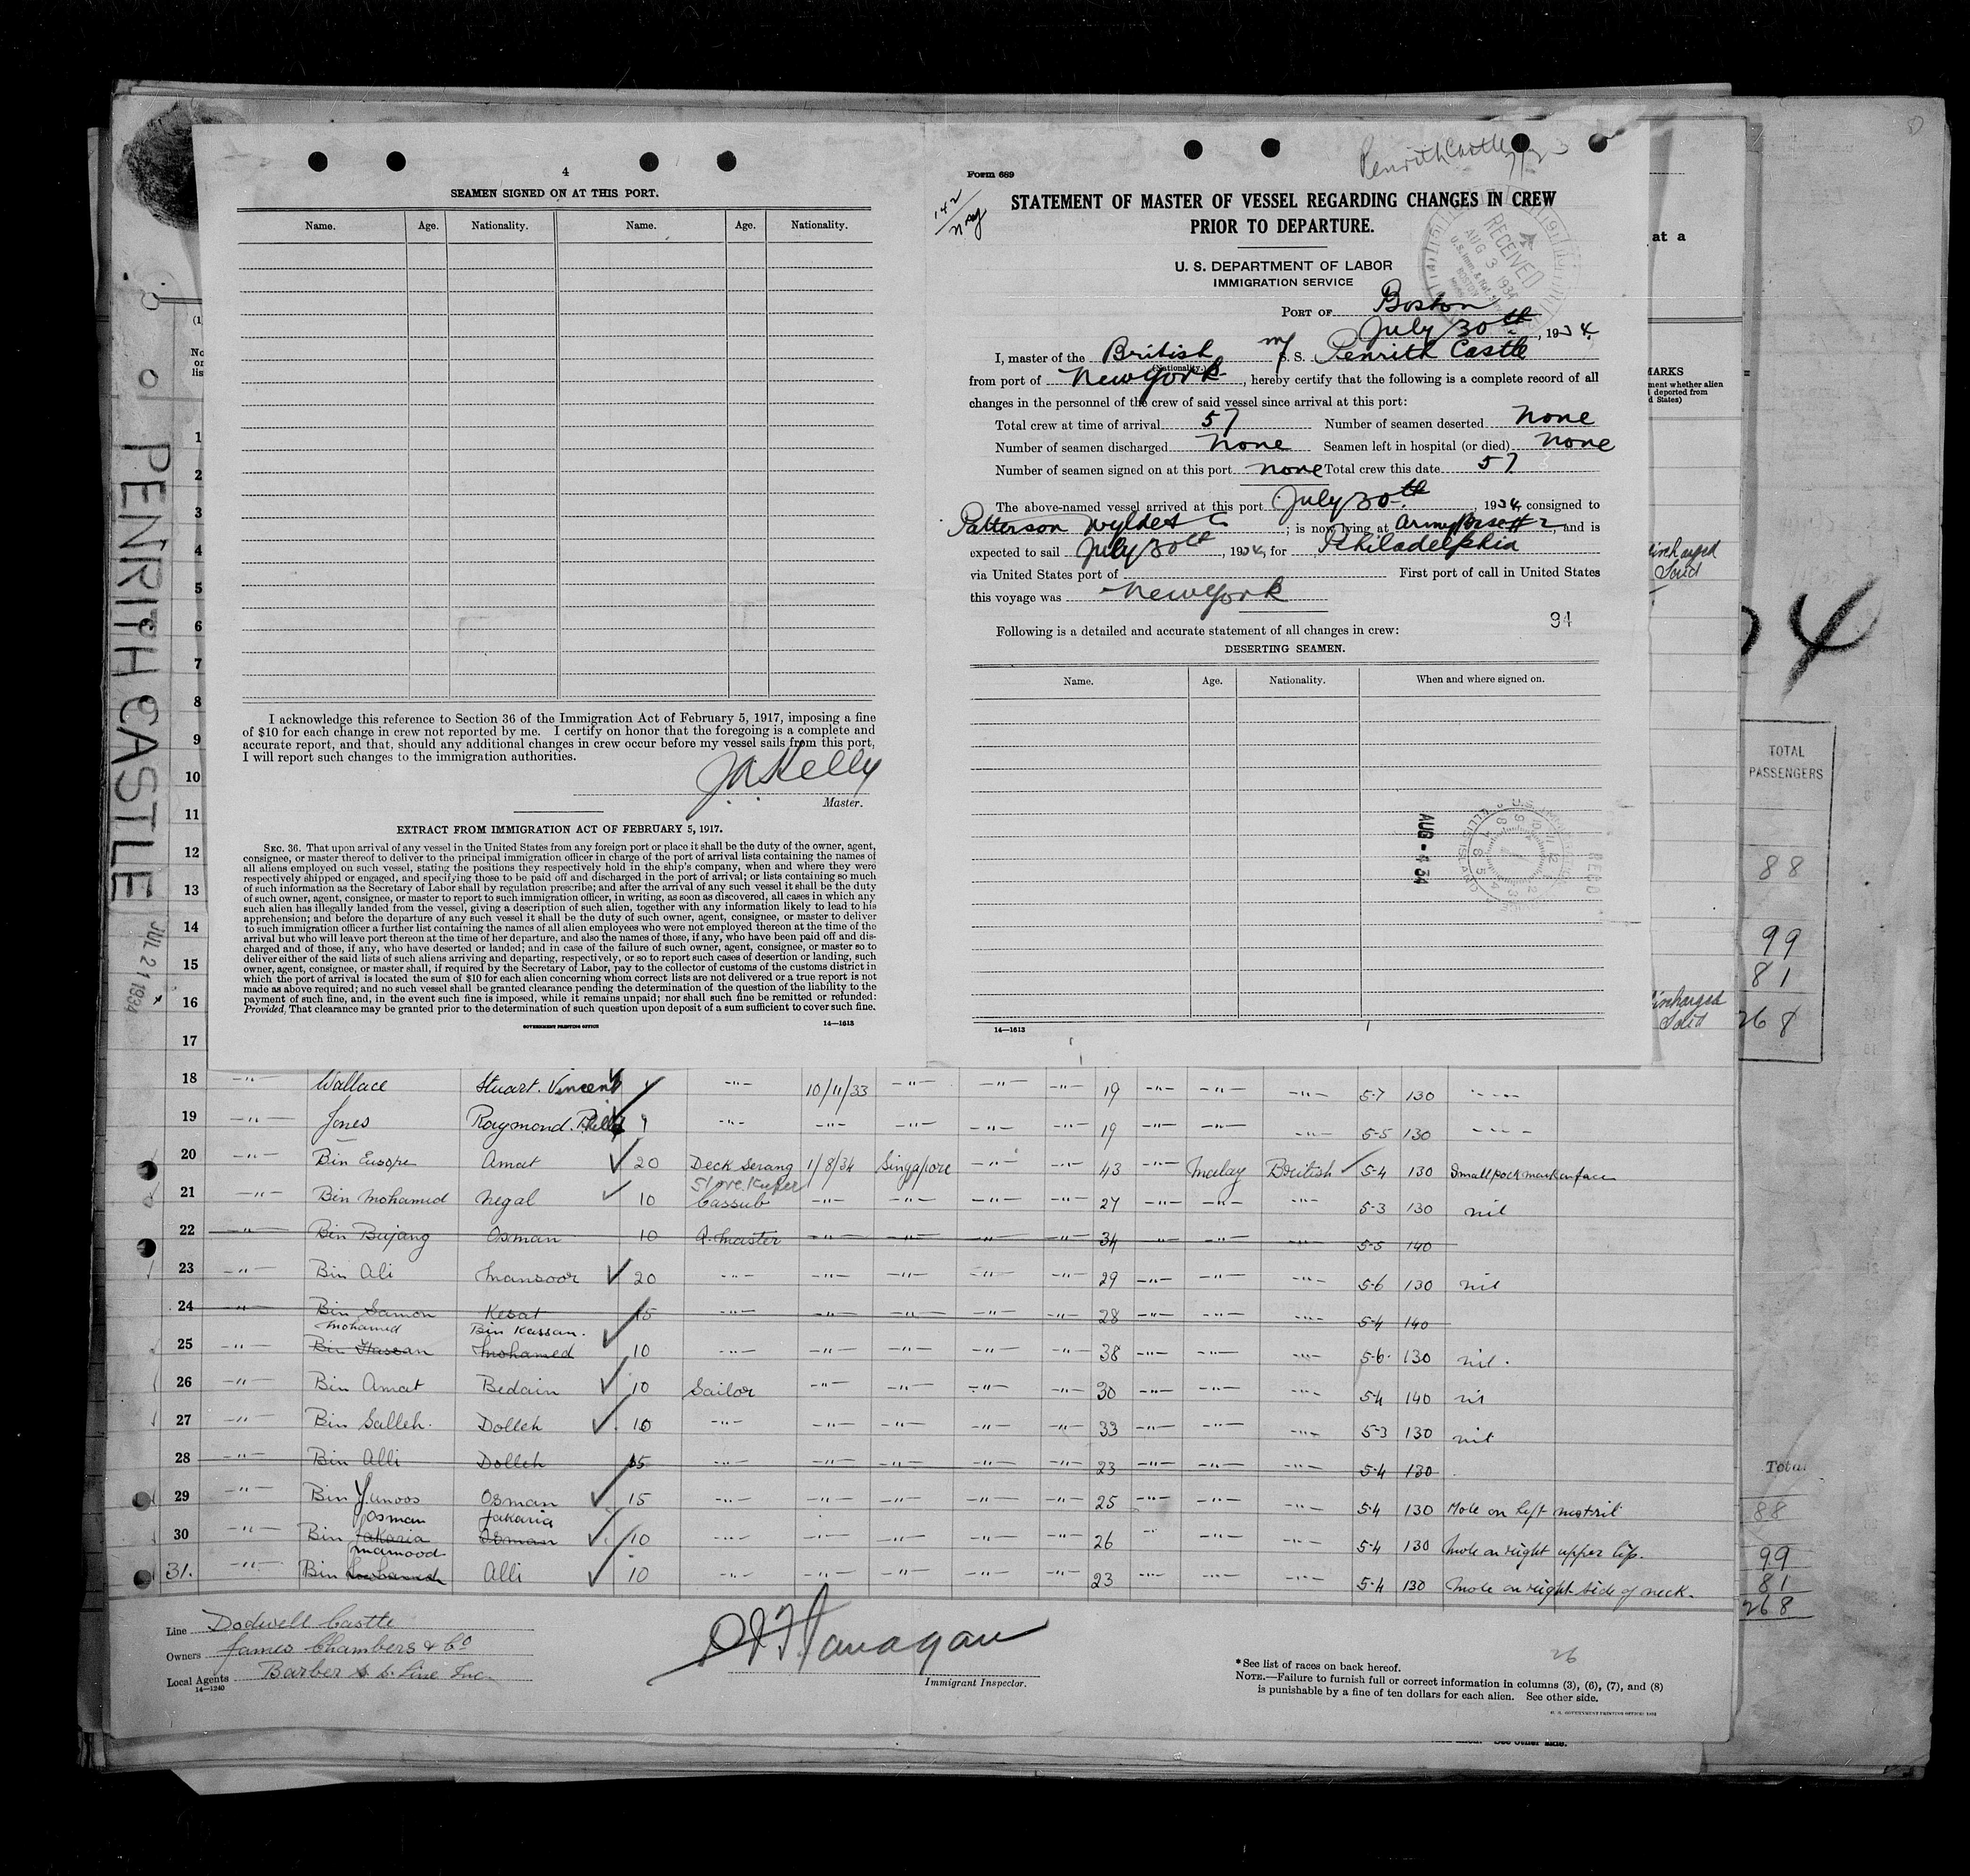 4
SEAMEN SIGNED ON AT THIS PORT.
Name. Age. Nationality. Name. Age. Nationality.
I acknowledge this reference to Section 36 of the Immigration Act of February 5, 1917, imposing a fine
of $10 for each change in crew not reported by me. I certify on honor that the foregoing is a complete and
accurate report, and that, should any additional changes in crew occur before my vessel sails from this port,
I will report such changes to the immigration authorities.
J A Kelly
Master.
EXTRACT FROM IMMIGRATION ACT OF FEBRUARY 5, 1917.
SEC. 36. That upon arrival of any vessel in the United States from any foreign port or place it shall be the duty of the owner, agent,
consignee, or master thereof to deliver to the principal immigration officer in charge of the port of arrival lists containing the names of
all aliens employed on such vessel, stating the positions they respectively hold in the ship's company, when and where they were
respectively shipped or engaged, and specifying those to be paid off and discharged in the port of arrival; or lists containing so much
of such information as the Secretary of Labor shall by regulation prescribe; and after the arrival of any such vessel it shall be the duty
of such owner, agent, consignee, or master to report to such immigration officer, in writing, as soon as discovered, all cases in which any
such alien has illegally landed from the vessel, giving a description of such alien, together with any information likely to lead to his
apprehension; and before the departure of any such vessel it shall be the duty of such owner, agent, consignee, or master to deliver
to such immigration officer a further list containing the names of all alien employees who were not employed thereon at the time of the
arrival but who will leave port thereon at the time of her departure, and also the names of those, if any, who have been paid off and dis-
charged and of those, if any, who have deserted or landed; and in case of the failure of such owner, agent, consignee, or master so to
deliver either of the said lists of such aliens arriving and departing, respectively, or so to report such cases of desertion or landing, such
owner, agent, consignee, or master shall, if required by the Secretary of Labor, pay to the collector of customs of the customs district in
which the port of arrival is located the sum of $10 for each alien concerning whom correct lists are not delivered or a true report is not
made as above required; and no such vessel shall be granted clearance pending the determination of the question of the liability to the
payment of such fine, and, in the event such fine is imposed, while it remains unpaid; nor shall such fine be remitted or refunded:
Provided, That clearance may be granted prior to the determination of such question upon deposit of a sum sufficient to cover such fine.
GOVERNMENT PRINTING OFFICE 14—1613
Penrith Castle
Form 689
STATEMENT OF MASTER OF VESSEL REGARDING CHANGES IN CREW
PRIOR TO DEPARTURE.
U. S. DEPARTMENT OF LABOR
IMMIGRATION SERVICE
RECEIVED
AUG 3 1934
BOSTON
PORT OF Boston
July 30th, 1934.
I, master of the British M S. S. Penrith Castle
(Nationality.)
from port of New York, hereby certify that the following is a complete record of all
changes in the personnel of the crew of said vessel since arrival at this port:
Total crew at time of arrival 57 Number of seamen deserted None
Number of seamen discharged None Seamen left in hospital (or died) None
Number of seamen signed on at this port none Total crew this date 57
The above-named vessel arrived at this port July 30th, 1934, consigned to
Patterson Wylde & Co; is now lying at Army Base #2, and is
expected to sail July 30th, 1934, for Philadelphia
via United States port of First port of call in United States
this voyage was New York
94
Following is a detailed and accurate statement of all changes in crew:
DESERTING SEAMEN.
Name. Age. Nationality. When and where signed on.
AUG - 4 34
14—1613
PENRITH CASTLE
JUL 21 1934
at a
MARKS
TOTAL
PASSENGERS
88
99
81
268
1
2
3
4
5
6
7
8
9
10
11
12
13
14
15
16
17
18 —"— Wallace Stuart. Vincent —"— 10/11/33 —"— —"— —"— 19 —"— —"— —"— 5-7 130
19 —"— Jones Raymond. —"— —"— —"— —"— —"— 19 —"— —"— —"— 5-5 130
20 —"— Bin Europe Amat 20 Deck Serang 1/8/34 Singapore —"— —"— 43 —"— Malay British 5-4 130 Small pock mark on face
Store Keeper
21 —"— Bin Mohamed Negal 10 Cassub —"— —"— —"— —"— 27 —"— —"— —"— 5-3 130 nil
22 —"— Bin Bujang Osman 10 Q. Master —"— —"— —"— —"— 34 —"— —"— —"— 5-5 140
23 —"— Bin Ali Mansoor 20 —"— —"— —"— —"— —"— 29 —"— —"— —"— 5-6 130 nil
24 —"— Bin Samon Kesat 15 —"— —"— —"— —"— —"— 28 —"— —"— —"— 5-4 140
Mohamed Bin Kassan.
25 —"— Bin Hassan Mohamed 10 —"— —"— —"— —"— —"— 38 —"— —"— —"— 5-6 130 nil.
26 —"— Bin Amat Bedain 10 Sailor —"— —"— —"— —"— 30 —"— —"— —"— 5-4 140 nil
27 —"— Bin Salleh. Dolleh 10 —"— —"— —"— —"— —"— 33 —"— —"— —"— 5-3 130 nil
28 —"— Bin Alli Dolleh 15 —"— —"— —"— —"— —"— 23 —"— —"— —"— 5-4 130
29 —"— Bin Yunoos Osman 15 —"— —"— —"— —"— —"— 25 —"— —"— —"— 5-4 130 Mole on left nostril
Osman Jakaria
30 —"— Bin Jakaria Osman 10 —"— —"— —"— —"— —"— 26 —"— —"— —"— 5-4 130 Mole on right upper lip.
Mamood
31. —"— Bin Alli 10 —"— —"— —"— —"— —"— 23 —"— —"— —"— 5-4 130 Mole on right side of neck.
Total
88
99
81
268
Line Dodwell Castle
Owners James Chambers & Co
Local Agents Barber S. S. Line Inc.
14—1240
Flanagan
Immigrant Inspector.
26
*See list of races on back hereof.
NOTE.—Failure to furnish full or correct information in columns (3), (6), (7), and (8)
is punishable by a fine of ten dollars for each alien. See other side.
U. S. GOVERNMENT PRINTING OFFICE
See other side.